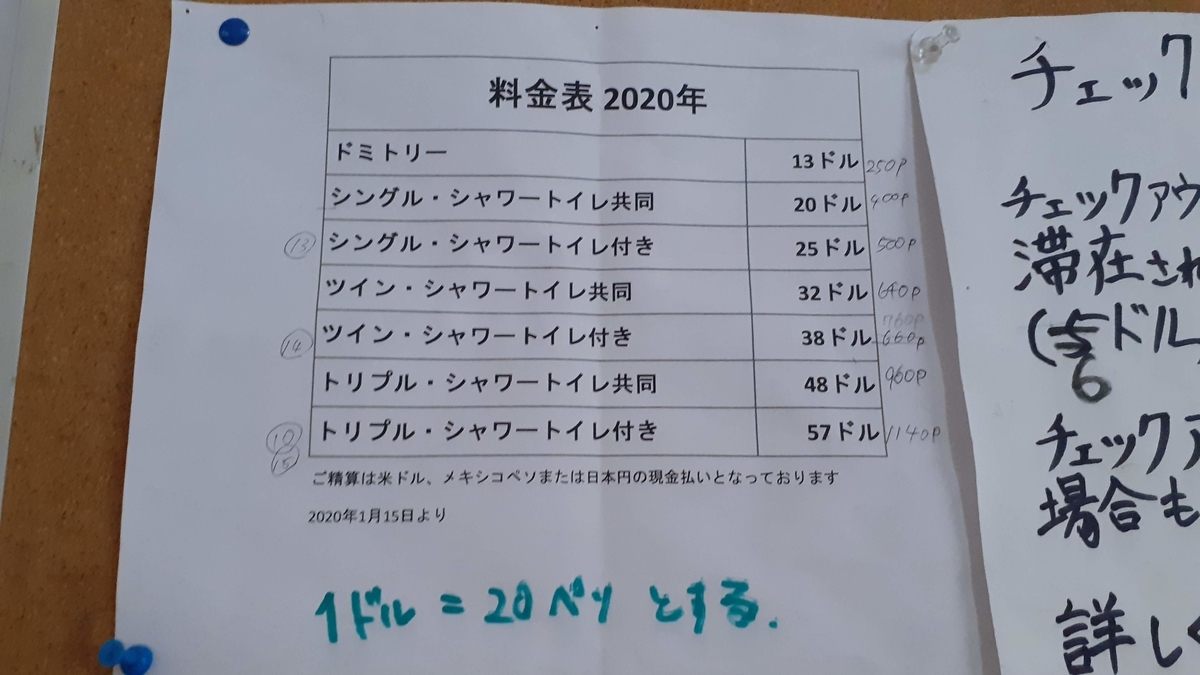 料金表 2020年
ドミトリー 13ドル 250P
シングル・シャワートイレ共同 20ドル 400P
13 シングル・シャワートイレ付き 25ドル 500P
ツイン・シャワートイレ共同 32ドル 640P
760P
14 ツイン・シャワートイレ付き 38ドル 660P
トリプル・シャワートイレ共同 48ドル 960P
10 トリプル・シャワートイレ付き 57ドル 1140P
15
ご精算は米ドル、メキシコペソまたは日本円の現金払いとなっております
2020年1月15日より
1ドル = 20ペソ とする.
チェック
チェックアウ
滞在され
(5ドル
6
チェックア
場合も
詳しく